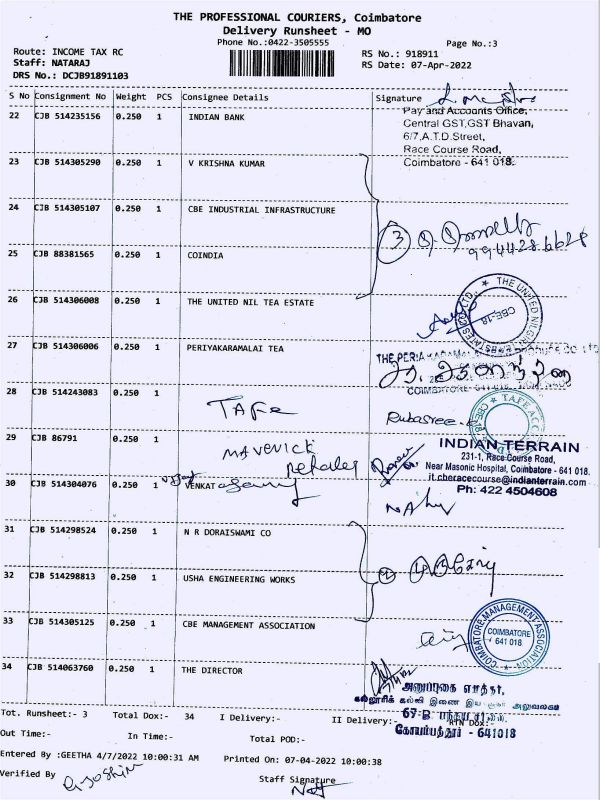 THE PROFESSIONAL COURIERS, Coimbatore
Delivery Runsheet - MO
Phone No.:0422-3505555
Page No.:3
Route: INCOME TAX RC
RS No.: 918911
Staff: NATARAJ
RS Date: 07-Apr-2022
DRS No.: DCJB91891103
S No Consignment No Weight PCS Consignee Details Signature
22 CJB 514235156 0.250 1 INDIAN BANK
Pay and Accounts Office,
Central GST,GST Bhavan,
6/7,A.T.D.Street,
Race Course Road,
Coimbatore - 641 018.
23 CJB 514305290 0.250 1 V KRISHNA KUMAR
24 CJB 514305107 0.250 1 CBE INDUSTRIAL INFRASTRUCTURE
3
9944286628
25 CJB 88381565 0.250 1 COINDIA
26 CJB 514306008 0.250 1 THE UNITED NIL TEA ESTATE
THE UNITED NILGIRI
CBE-18
27 CJB 514306006 0.250 1 PERIYAKARAMALAI TEA
THE PERIA
COIMBATORE
28 CJB 514243083 0.250 1
TAFE
TAFE ACC
CBE-18
29 CJB 86791 0.250 1
MAVERICK
INDIAN TERRAIN
231-1, Race Course Road,
Near Masonic Hospital, Coimbatore - 641 018.
it.cberacecourse@indianterrain.com
Ph: 422 4504608
30 CJB 514304076 0.250 1 VENKAT
31 CJB 514298524 0.250 1 N R DORAISWAMI CO
32 CJB 514298813 0.250 1 USHA ENGINEERING WORKS
33 CJB 514305125 0.250 1 CBE MANAGEMENT ASSOCIATION
COIMBATORE MANAGEMENT ASSOCIATION
COIMBATORE
641 018
34 CJB 514063760 0.250 1 THE DIRECTOR
அனுப்புகை எழுத்தர்,
கல்லூரிக் கல்வி இணை இயக்குநர் அலுவலகம்
கோயம்புத்தூர் - 641018
Tot. Runsheet:- 3 Total Dox:- 34 I Delivery:- II Delivery:- RTN Dox:-
Out Time:- In Time:- Total POD:-
Entered By :GEETHA 4/7/2022 10:00:31 AM Printed On: 07-04-2022 10:00:38
Verified By
Staff Signature